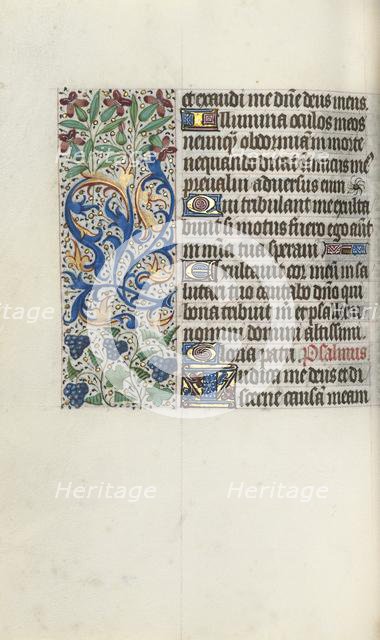 et exaudi me dñe deus meus.
Illumina oculos meos
ne unq̃ obdormia in morte
nequando dicat inimicus me⁹
preualui aduersus eum
Qui tribulant me exulta
bunt si motus fuero ego aut̃
in mĩa tua speraui
Exultauit cor meũ in sa
lutari tuo cantabo dño qui
bona tribuit m̃ et psallam
nomini domini altissimi
Gloria patri. Psalmus.
Iudica me deus et di
scerne causã meam
Heritage
Heritage
Heritage
Heritage
Heritage
Heritage